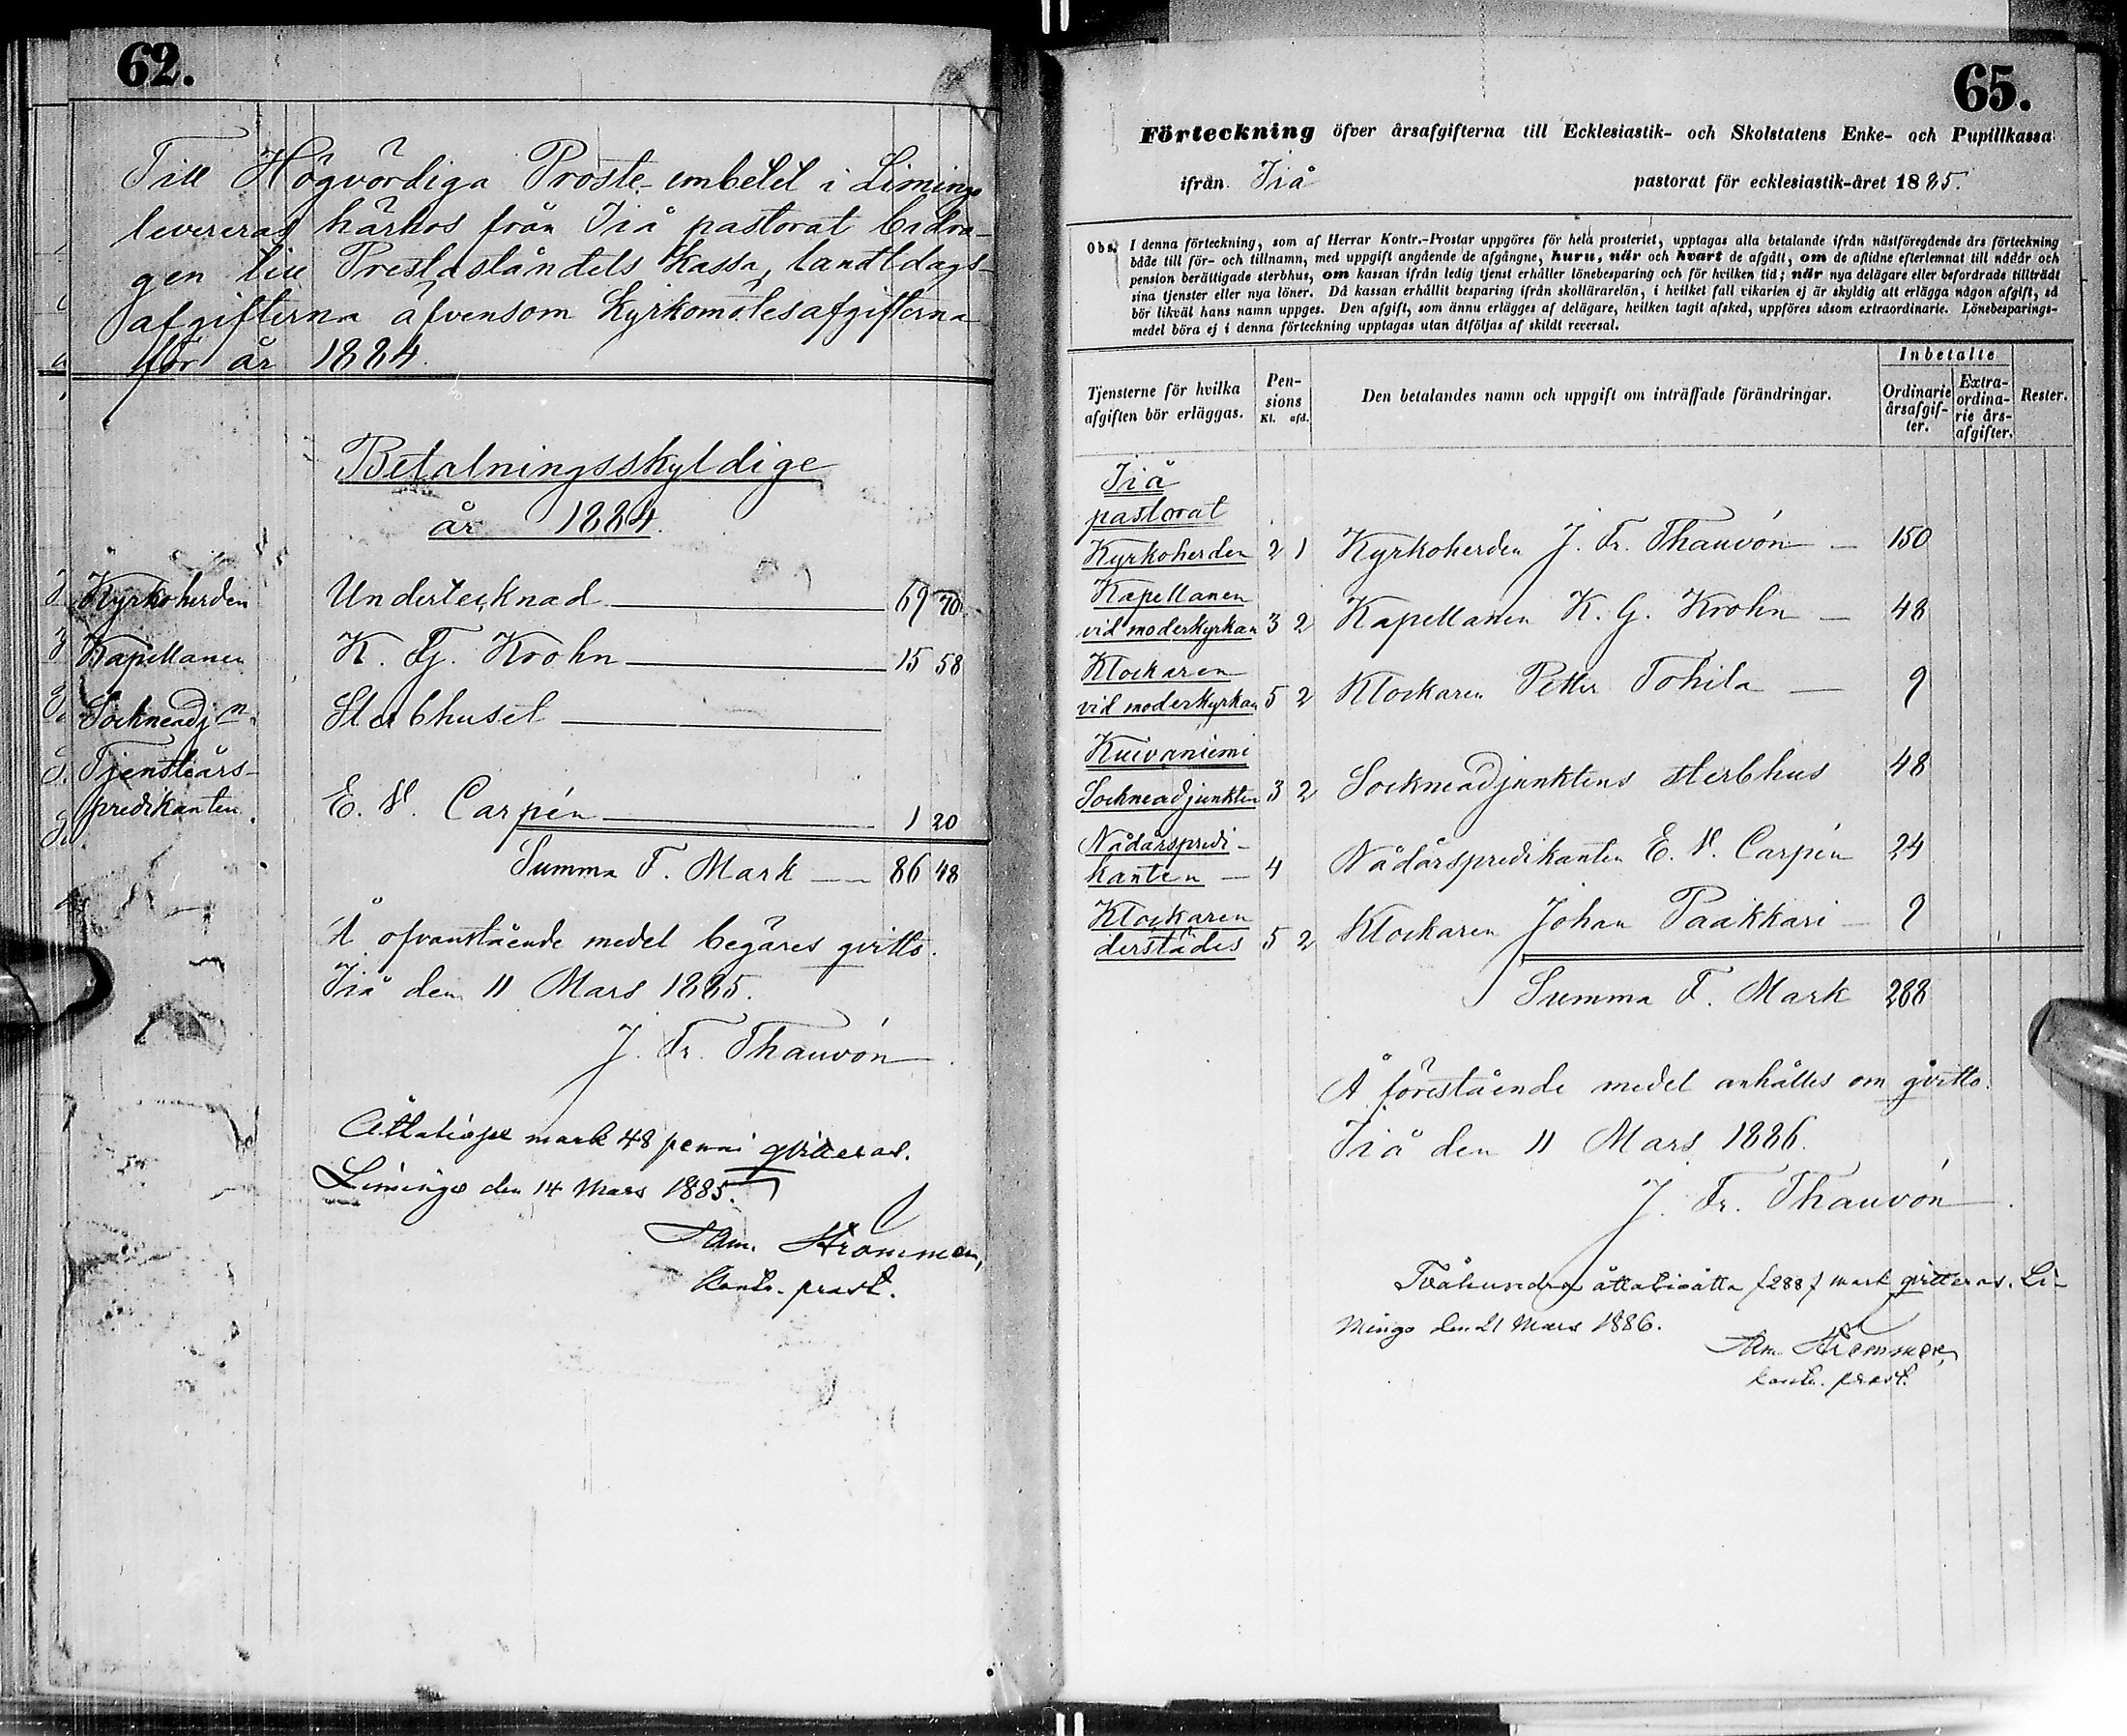 62.
Till Högvördiga Proste-embetet i Limingo
levereras härhos från Iiå pastorat bidra-
gen till Presteståndets kassa, landtdags-
afgifterna äfvensom kyrkomötesafgifterna
för år 1884.
Betalningsskyldige
år 1884.
Kyrkoherden Undertecknad 69 70
Kapellanen K. G. Krohn 15 58
Sockneadjn. Sterbhuset
Tjensteårs-
predikanten E. V. Carpén 1 20
Summa F. Mark 86 48
Å ofvanstående medel begäres qvitto.
Iiå den 11 Mars 1885.
J. Fr. Thauvón
Åttatiosex mark 48 penni qvitteras.
Limingo den 14 Mars 1885.
Sam. Strömmer,
kontr. prost.
65.
Förteckning öfver årsafgifterna till Ecklesiastik- och Skolstatens Enke- och Pupillkassa
ifrån Iiå pastorat för ecklesiastik-året 1885.
Obs. I denna förteckning, som af Herrar Kontr.-Prostar uppgöres för hela prosteriet, upptagas alla betalande ifrån nästföregående års förteckning
både till för- och tillnamn, med uppgift angående de afgångne, huru, när och hvart de afgått, om de aflidne efterlemnat till nådår och
pension berättigade sterbhus, om kassan ifrån ledig tjenst erhåller lönebesparing och för hvilken tid; när nya delägare eller befordrade tillträdt
sina tjenster eller nya löner. Då kassan erhållit besparing ifrån skollärarelön, i hvilket fall vikarien ej är skyldig att erlägga någon afgift, så
bör likväl hans namn uppges. Den afgift, som ännu erlägges af delägare, hvilken tagit afsked, uppföres såsom extraordinarie. Lönebesparings-
medel böra ej i denna förteckning upptagas utan åtföljas af skildt reversal.
Tjensterne för hvilka
afgiften bör erläggas.
Pen-
sions
Kl. afd.
Den betalandes namn och uppgift om inträffade förändringar.
Inbetalte
Ordinarie
årsafgif-
ter.
Extra-
ordina-
rie års-
afgifter.
Rester.
Iiå
pastorat
Kyrkoherden 2 1 Kyrkoherden J. Fr. Thauvón 150
Kapellanen
vid moderkyrkan 3 2 Kapellanen K. G. Krohn 48
Klockaren
vid moderkyrkan 5 2 Klockaren Petter Tohila 9
Kuivaniemi
Sockneadjunkten 3 2 Sockneadjunktens sterbhus 48
Nådårspredi-
kanten 4 Nådårspredikanten E. V. Carpén 24
Klockaren
derstädes 5 2 Klockaren Johan Paakkari 9
Summa F. Mark 288
Å förestående medel anhålles om qvitto.
Iiå den 11 Mars 1886.
J. Fr. Thauvón
Tvåhundra åttatioåtta (288) mark qvitteras. Li-
mingo den 21 Mars 1886.
Sam. Strömmer,
kontr. prost.